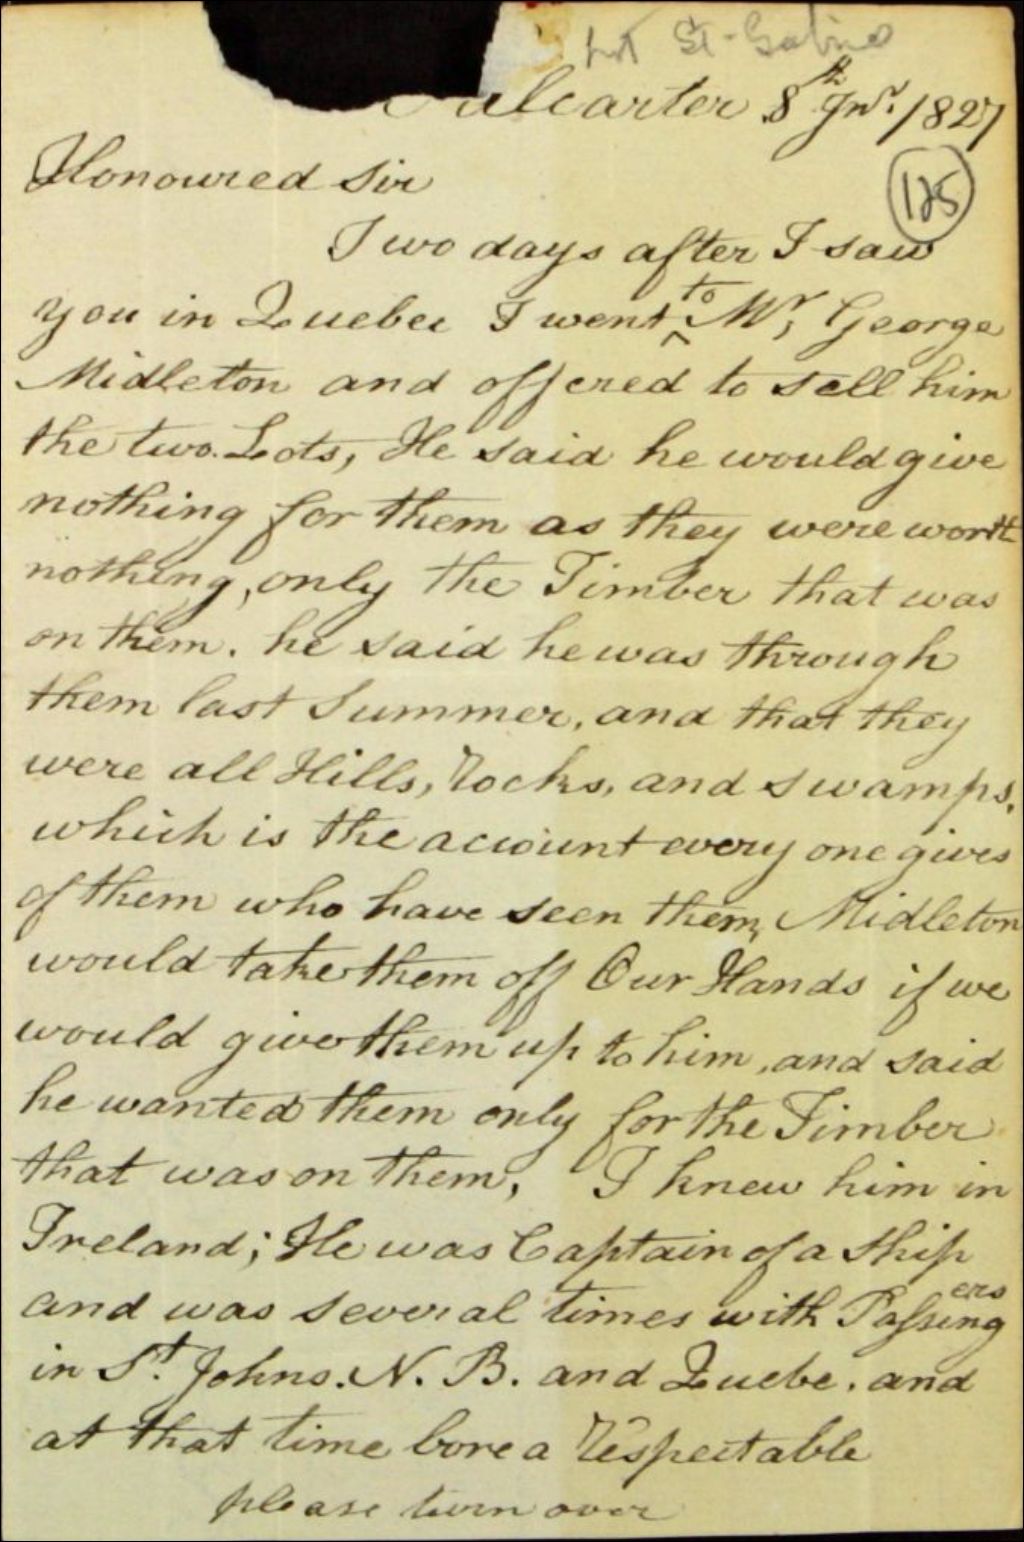 St. Gabriel
alcartier 8th Jnr. 1827
125
Honoured Sir
Two days after I saw
you in Quebec I went to Mr, George
Midleton and offered to sell him
the two Lots, He said he would give
nothing for them as they were worth
nothing, only the Timber that was
on them. he said he was through
them last Summer, and that they
were all Hills, rocks, and swamps,
which is the account every one gives
of them who have seen them, Midleton
would take them off Our Hands if we
would give them up to him, and said
he wanted them only for the Timber
that was on them, I knew him in
Ireland; He was Captain of a Ship
and was several times with Passingers
in St. Johns. N. B. and Quebe. and
at that time bore a respectable
please turn over